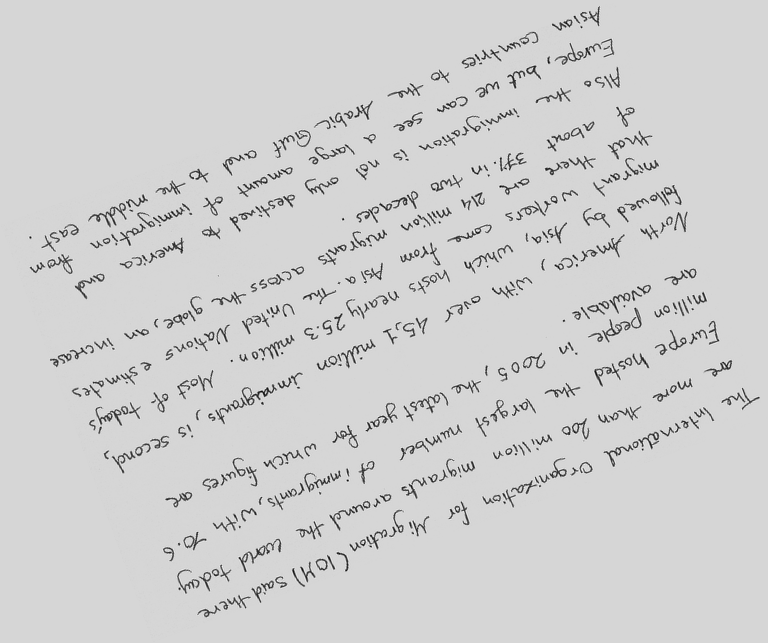 The International Organization for Migration (IOM) said there
are more than 200 million migrants around the world today.
Europe hosted the largest number of immigrants, with 70.6
million people in 2005, the latest year for which figures are
are available.
North America, with over 45,1 million immigrants, is second,
followed by Asia, which hosts nearly 25.3 million. Most of today's
migrant workers come from Asia. The United Nations estimates
that there are 214 million migrants across the globe, an increase
of about 37%. in two decades.
Also the immigration is not only destined to America and
Europe, but we can see a large amount of immigration from
Asian countries to the Arabic Gulf and to the middle east.